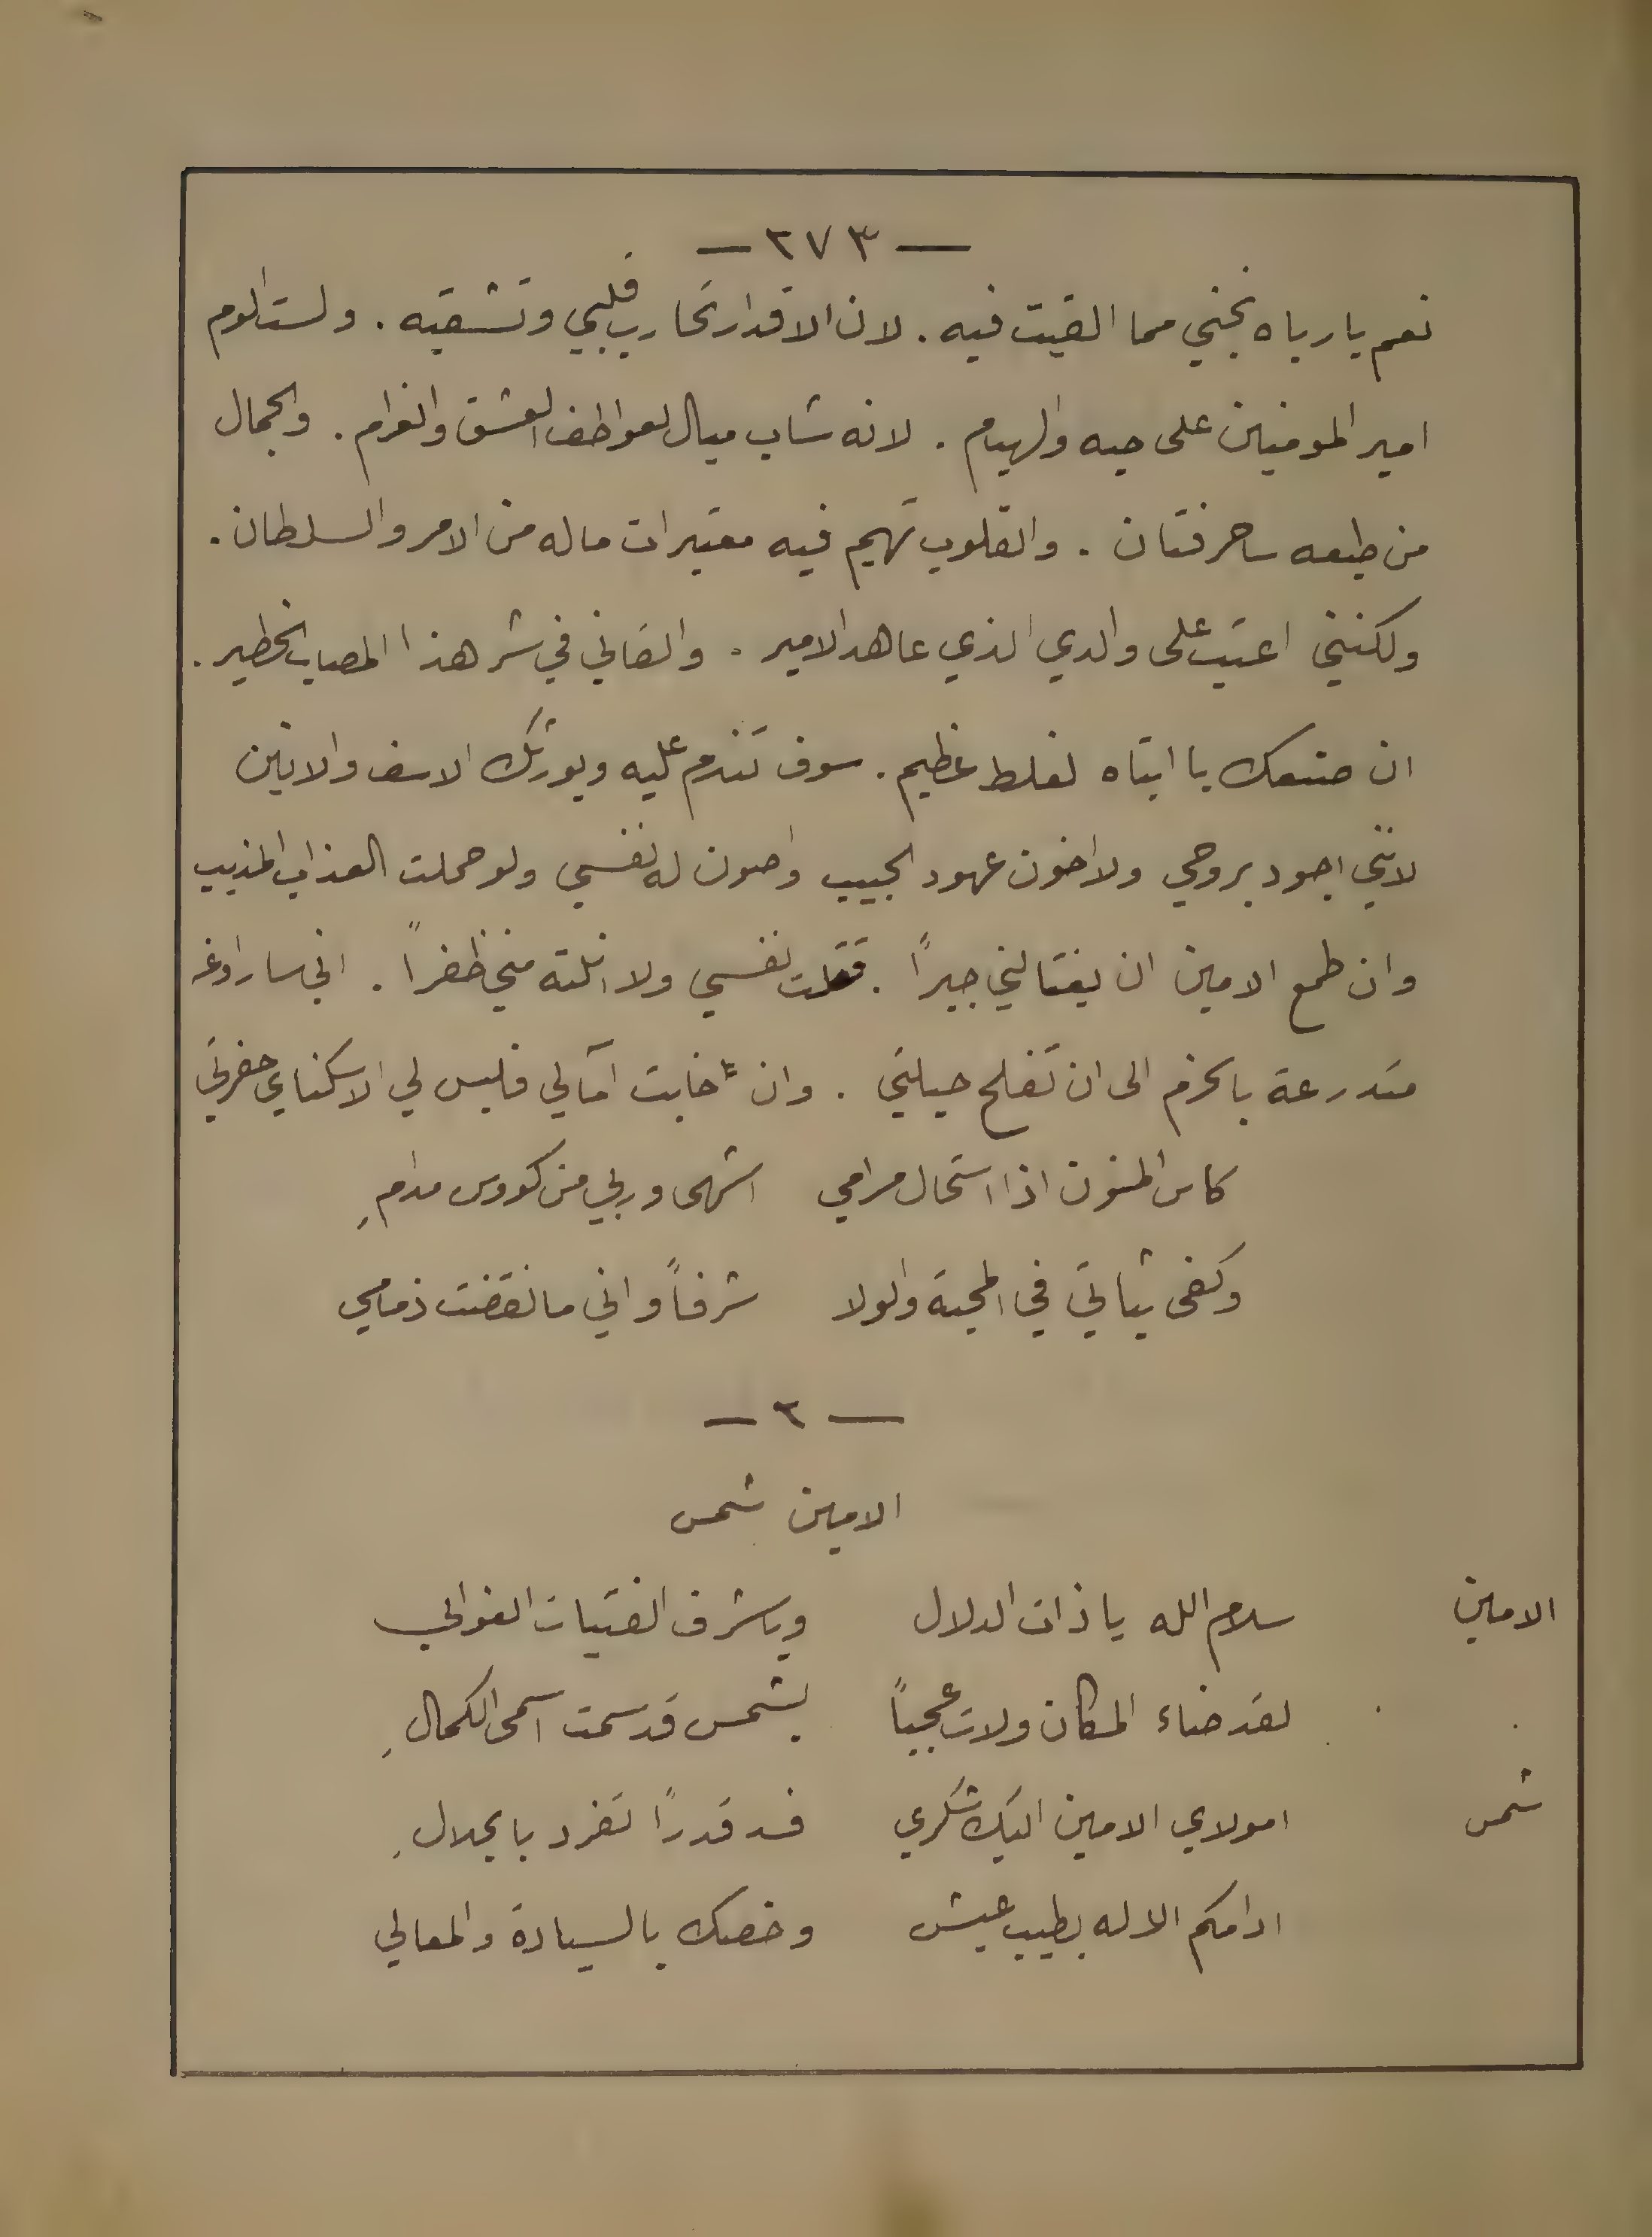 — ٢٧٣ —
نعم يا رباه نجني مما القيت فيه . لان الاقدار تحارب قلبي وتشقيه . ولست الوم
امير المومنين على حبه والهيام . لانه شاب ميال لعواطف العشق والغرام . والجمال
من طبعه ساحر فتان . والقلوب تهيم فيه معتبرات ماله من الامر والسلطان .
ولكنني اعتب على والدي الذي عاهد الامير . والقاني في شر هذا المصاب الخطير .
ان صنعك يا ابتاه لغلط عظيم . سوف تندم عليه ويورثك الاسف والانين
لانني اجود بروحي ولا اخون عهود الحبيب واصون له نفسي ولو حملت العذاب المذيب
وان طمع الامين ان يغتالني جبراً . قتلت نفسي ولا انلته مني ظفراً . اني ساراوغه
متدرعة بالحزم الى ان تفلح حيلتي . وان خابت آمالي فليس لي الا سكناي حفرتي
كاس المنون اذا استحال مرامي اشهى وربي من كووس مدامِ
وكفى ثباتي في المحبة والولا شرفاً واني ما نقضت ذمامي
— ٢ —
الامين شمس
الامين سلام الله يا ذات الدلال ويا شرف الفتيات الغوالي
لقد ضاء المكان ولات عجباً بشمس قد سمت اسمى الكمالِ
شمس امولاي الامين اليك شكري فسد قدراً تفرد بالجلالِ
ادامكم الاله بطيب عيش وخصك بالسيادة والمعالي